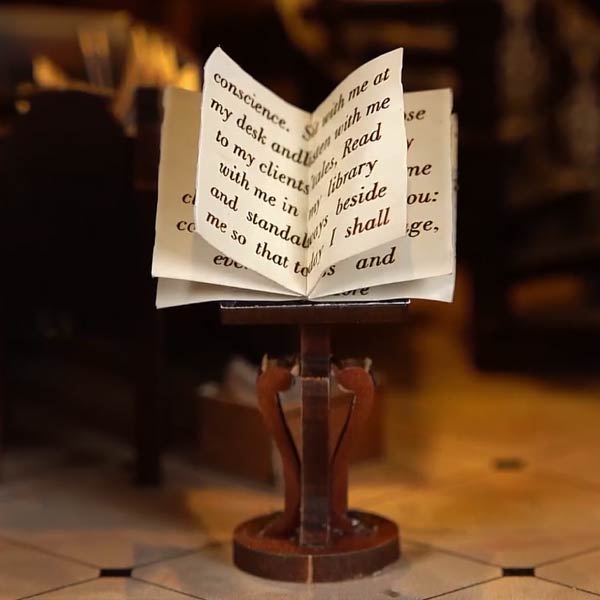 conscience. Sit with me at
my desk and listen with me
to my clients' tales, Read
with me in my library
and stand always beside
me so that today I shall
and